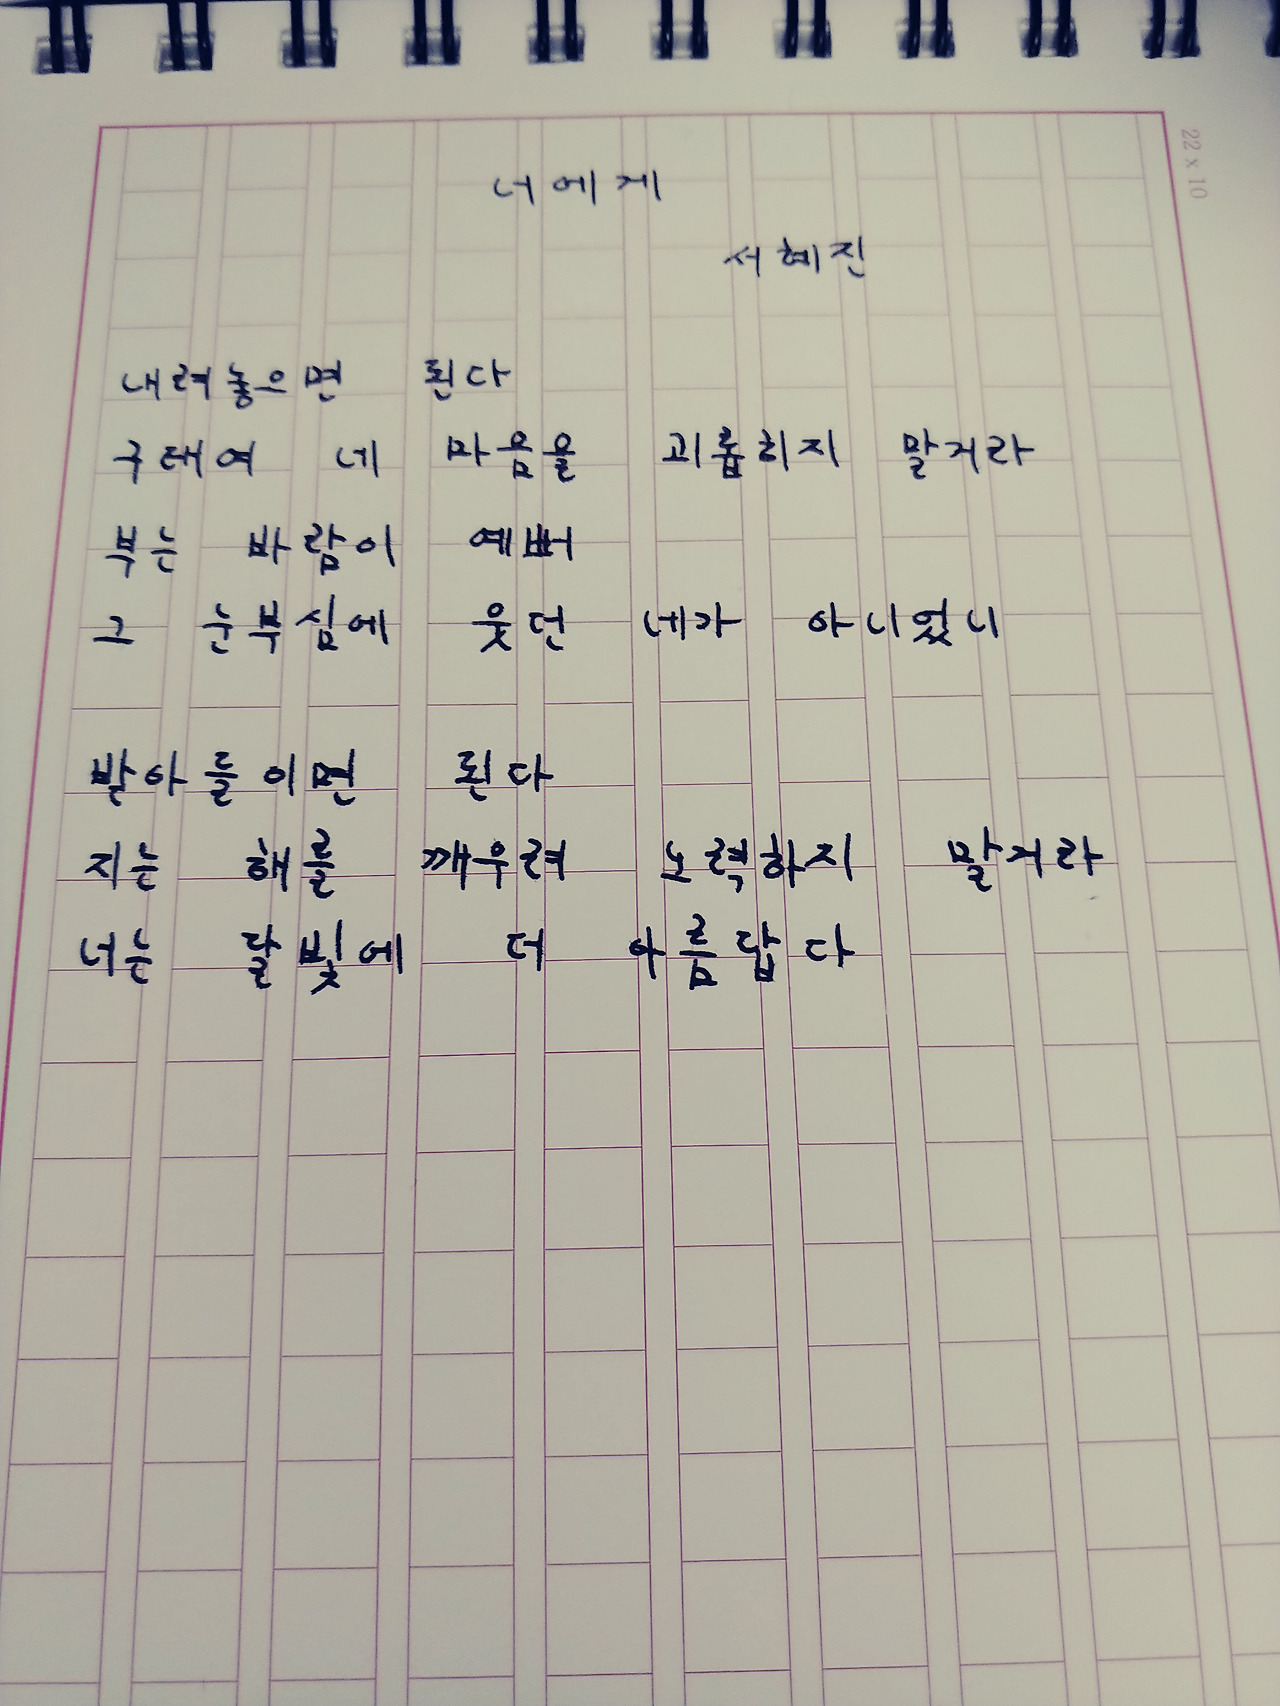 22 x 10
너에게
서혜진
내려놓으면 된다
구태여 네 마음을 괴롭히지 말거라
부는 바람이 예뻐
그 눈부심에 웃던 네가 아니었니
받아들이면 된다
지는 해를 깨우려 노력하지 말거라
너는 달빛에 더 아름답다